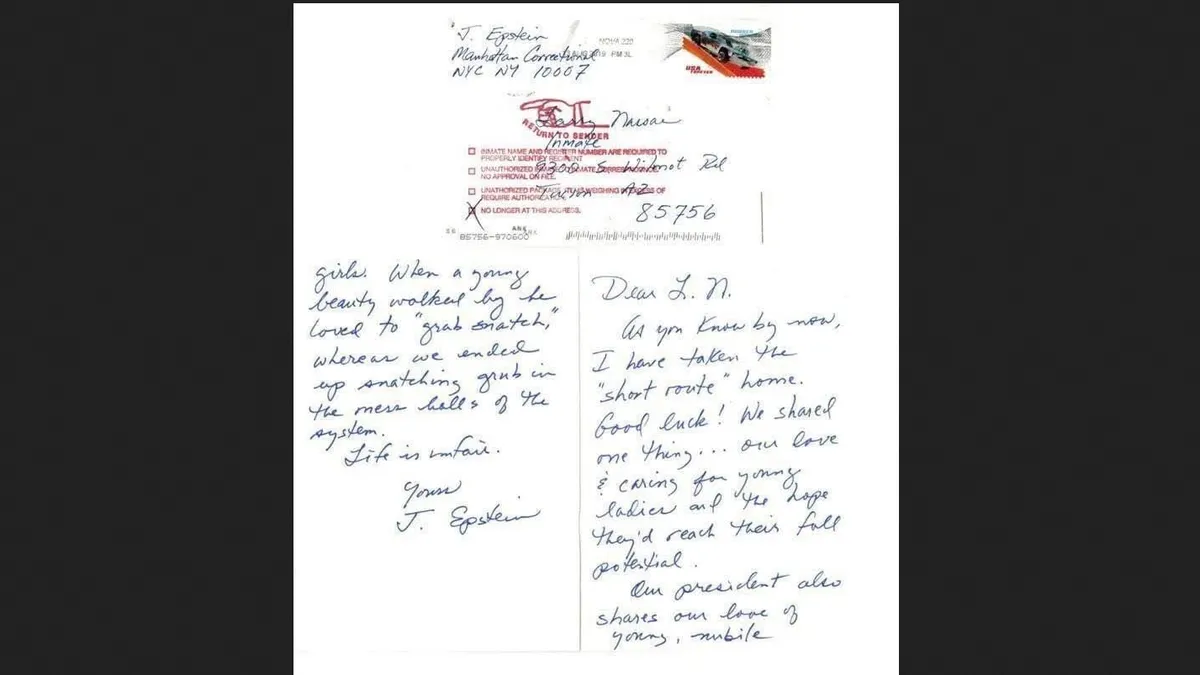 J. Epstein
Manhattan Correctional
NYC NY 10007
NOVA 220
PM 3L
USA
FOREVER
Larry Nassar
RETURN TO SENDER
Inmate
INMATE NAME AND REGISTER NUMBER ARE REQUIRED TO
PROPERLY IDENTIFY RECIPIENT
9300 S. Wilmot Rd
UNAUTHORIZED
NO APPROVAL ON FILE.
Tucson AZ
UNAUTHORIZED WEIGHING OF
REQUIRE AUTHORIZATION.
NO LONGER AT THIS ADDRESS.
85756
ANK
85756-970600
Dear L. N.
As you know by now,
I have taken the
"short route" home.
Good luck! We shared
one thing... our love
& caring for young
ladies and the hope
they'd reach their full
potential.
Our president also
shares our love of
young, nubile
girls. When a young
beauty walked by he
loved to "grab snatch,"
whereas we ended
up snatching grub in
the mess halls of the
system.
Life is unfair.
Yours
J. Epstein